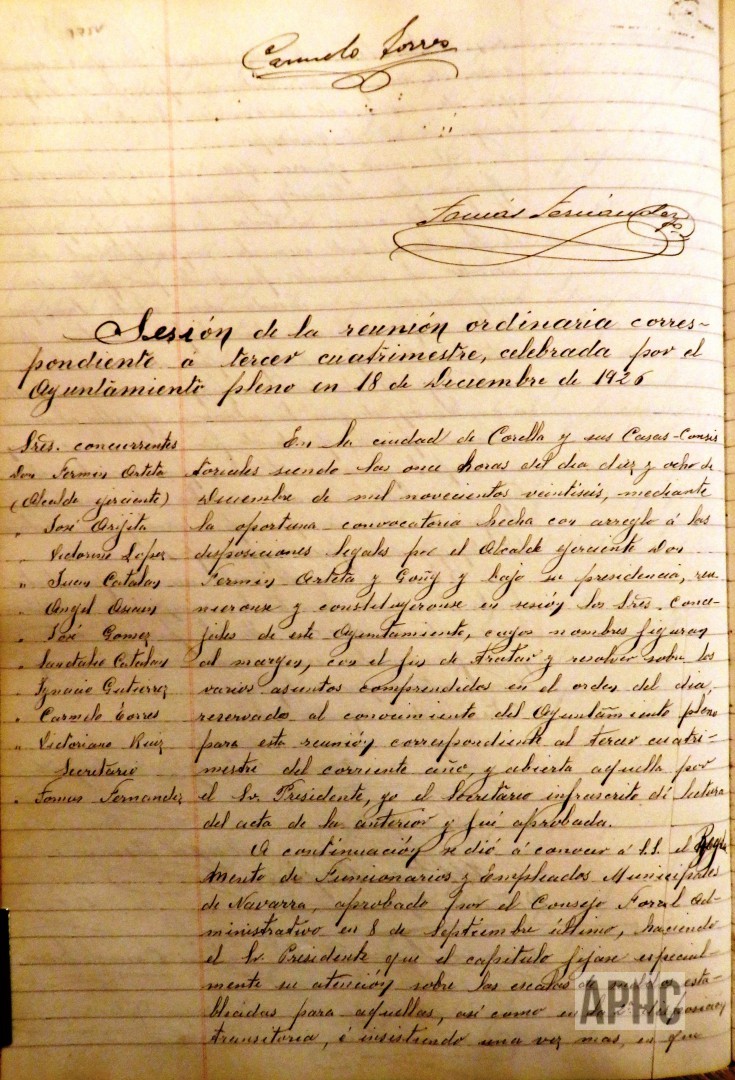 Carmelo Torres
Tomás Fernández
Sesión de la reunión ordinaria corres-
pondiente á tercer cuatrimestre, celebrada por el
Ayuntamiento pleno en 18 de Diciembre de 1926
Sres. concurrentes
Don Fermin Arteta
(Alcalde ejerciente)
" José Arijeta
" Victorino Lopez
" Juan Catalan
" Angel
" José Gomez
" Sandalio Catalan
" Ignacio Gutierrez
" Carmelo Torres
" Victoriano Ruiz
Secretario
" Tomas Fernandez
En la ciudad de Corella y sus Casas-Consis
toriales siendo las once horas del dia diez y ocho de
Diciembre de mil novecientos veintiseis, mediante
la oportuna convocatoria hecha con arreglo á las
disposiciones legales por el Alcalde ejerciente Don
Fermin Arteta y Goñy y bajo su presidencia, reu
nieronse y constituyeronse en sesión los Sres. Conce-
jales de este Ayuntamiento, cuyos nombres figuran
al margen, con el fin de tratar y resolver sobre los
varios asuntos comprendidos en el orden del dia,
reservados al conocimiento del Ayuntamiento pleno
para esta reunión correspondiente al tercer cuatri-
mestre del corriente año, y abierta aquella por
el Sr. Presidente, yo el Secretario infrascrito dí lectura
del acta de la anterior y fué aprobada.
A continuación se dió á conocer á S.S. el Regla
mento de Funcionarios y Empleados Municipales
de Navarra, aprobado por el Consejo Forral Ad-
ministrativo en 8 de Septiembre último, haciendo
el Sr. Presidente que el capitulo fijase especial-
mente su atención sobre las escalas de esta-
blecidas para aquellas, así como en la
transitoria, é insistiendo una vez mas, en que
APHC